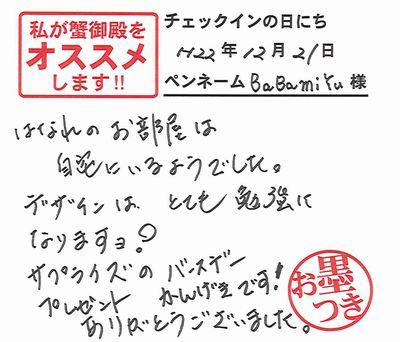 私が蟹御殿を
オススメ
します!!
チェックインの日にち
H22年12月21日
ペンネーム BaBamiYu 様
はなれのお部屋は
自宅にいるようでした。
デザインは とても勉強に
なりますョ?
サプライズの バースデー
プレゼント かんげきです!
ありがとうございました。
お墨つき